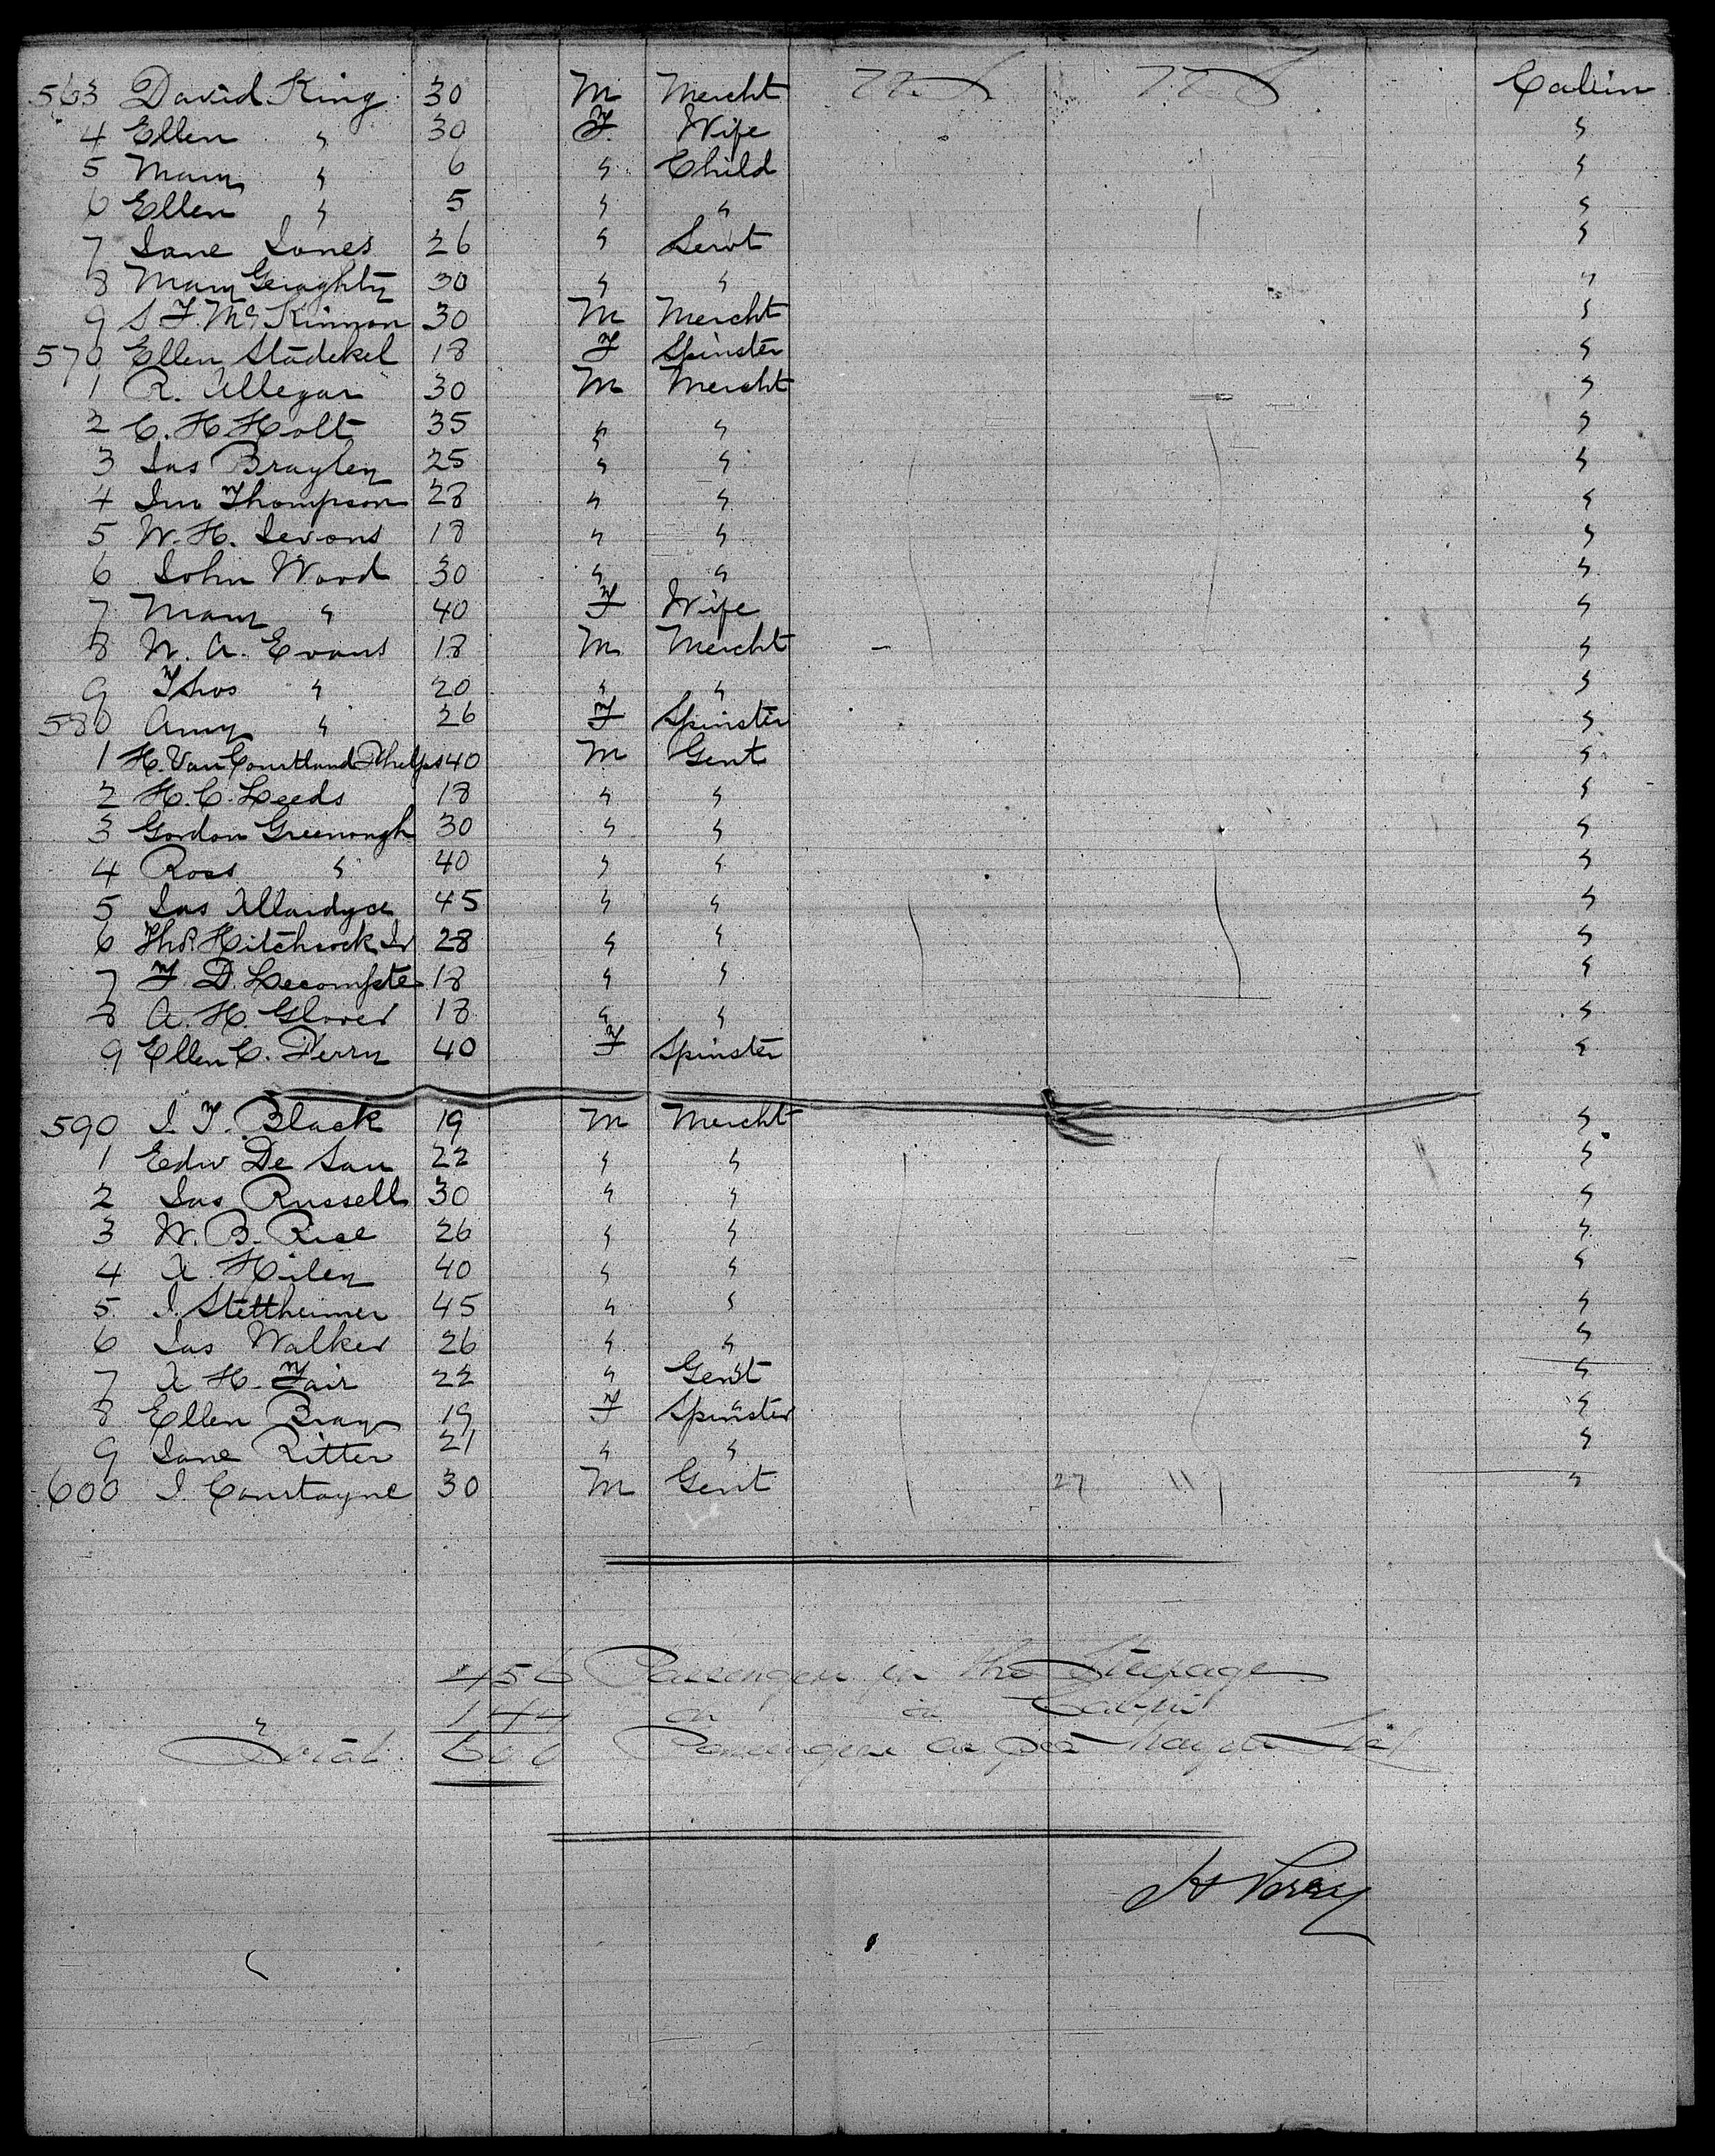 563 David King 30 M Mercht U.S. U.S. Cabin
4 Ellen " 30 F Wife "
5 Mary " 6 " Child "
6 Ellen " 5 " " "
7 Jane Jones 26 " Servt "
8 Mary Geraghty 30 " " "
9 S F. McKinnon 30 M Mercht "
570 Ellen Stadekel 18 F Spinster "
1 R. Allegar 30 M Mercht "
2 C. H. Holt 35 " " "
3 Jas Brayley 25 " " "
4 Jno Thompson 28 " " "
5 W. H. Jevons 18 " " "
6 John Wood 30 " " "
7 Mary " 40 F Wife "
8 W. A. Evans 18 M Mercht "
9 Thos " 20 " " "
580 Amy " 26 F Spinster "
1 H. Van Courtland Phelps 40 M Gent "
2 H. C. Leeds 18 " " "
3 Gordon Greenough 30 " " "
4 Ross " 40 " " "
5 Jas Allardyce 45 " " "
6 Thos Hitchcock Jr 28 " " "
7 F. D. Lecompte 18 " " "
8 A. H. Glover 18 " " "
9 Ellen C. Perry 40 F Spinster "
590 J. F. Black 19 M Mercht "
1 Edw De San 22 " " "
2 Jas Russell 30 " " "
3 W. B. Rice 26 " " "
4 A. Hiley 40 " " "
5 J. Stettheimer 45 " " "
6 Jas Walker 26 " " "
7 A H. Fair 22 " Gent "
8 Ellen Bray 19 F Spinster "
9 Jane Ritter 21 " " "
600 J. Courtayne 30 M Gent 27 11 "
456 Passengers in the Steerage
144 do in Cabin
Total 600 Passengers as per
H Perry